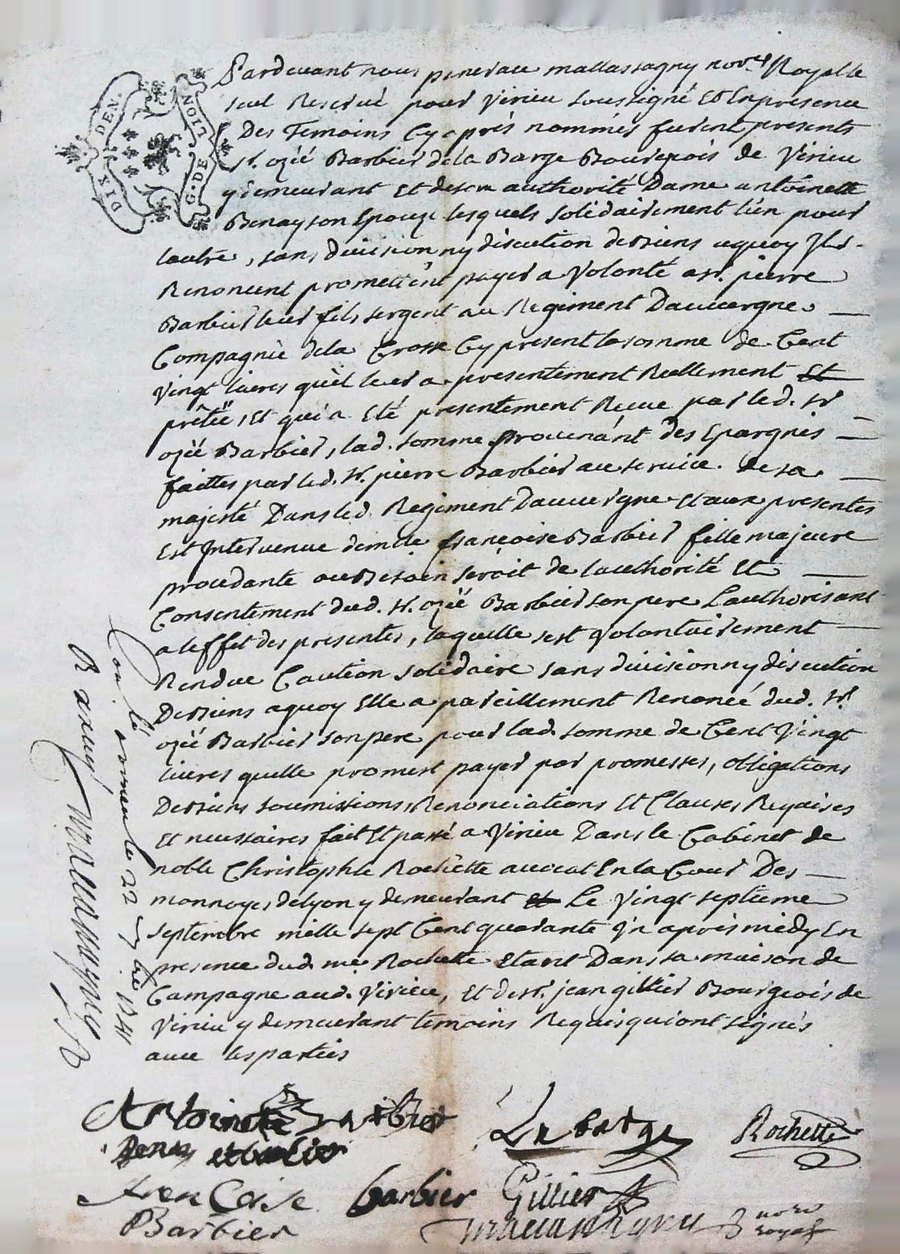 DIX DEN.
G. DE LION
Pardevant nous mallassagny nore Royalle
seul Reservé pour Virieu soussigné Et En presence
Des Temoins Cy aprés nommés furent presents
sr. ozée Barbier de la Barge Bourgeois de Virieu
y demeurant Et de son authorité Dame antoinette
Benay son Epouze lesquels solidairement l'un pour
lautre, sans division ny discution de biens aquoy Ils
Renoncent promettent payer a Volonté a sr. pierre
Barbier leur fils sergent au Regiment Dauvergne
Compagnie de la Crosse Cy present la somme de Cent
Vingt livres quil leur a presentement Reellement Et
prétée, Et qui a Eté presentement Recue par led. sr
ozée Barbier, lad. somme provenant des Epargnes
faittes par led. sr. pierre Barbier au service de sa
majesté Dans led. Regiment Dauvergne Et aux presentes
Est Intervenue demlle françoise Barbier fille majeure
procedante ou Besoin seroit de lauthorité Et
Consentement dud. sr. ozée Barbier son pere Lauthorisant
a leffet des presentes, laquelle sest Volontairement
Rendue Caution solidaire sans division ny discution
De biens aquoy Elle a pareillement Renoncé dud. sr.
ozée Barbier son pere pour lad. somme de Cent Vingt
livres quelle promest payer par promesses, obligations
De biens soumissions Renonciations Et Clauses Requises
Et necessaires fait Et passé a Virieu Dans le Cabinet de
noble Christophle Rochette avocat En la Cour Des
monnoyes de lyon y demeurant Et Le Vingt septieme
septembre mille sept Cent quarante Un apres midy En
presence dud. me. Rochette Etant Dans sa maison de
Campagne aud. Virieu, Et de sr. jean gillier Bourgeois de
Virieu y demeurant temoins Requis qui ont signés
avec les parties
Con.lé
22 bre 1741
Antoinete
Benay barbier
Labarge
Rochette
Francoise barbier
Gillier
Barbier
nore
royal